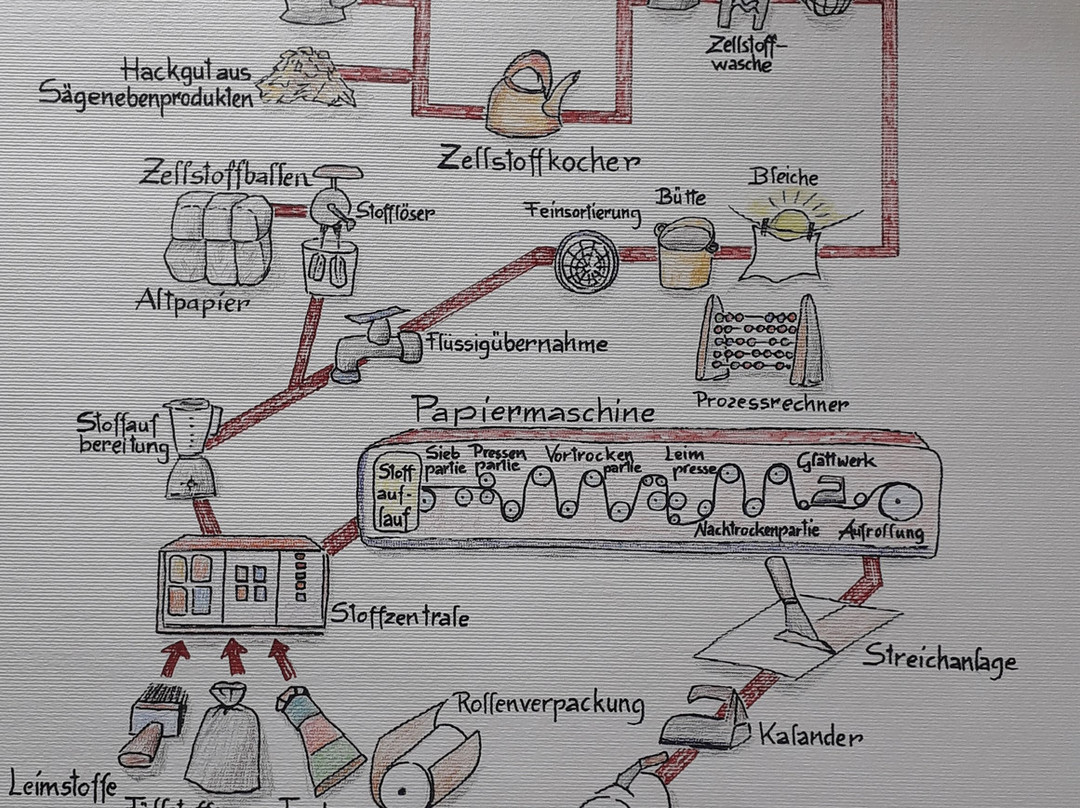 Zellstoff-
wäsche
Hackgut aus
Sägenebenprodukten
Zellstoffkocher
Zellstoffballen
Stofflöser
Feinsortierung
Bütte
Bleiche
Altpapier
Flüssigübernahme
Prozessrechner
Stoffauf
bereitung
Papiermaschine
Stoff
auf-
lauf
Sieb
partie
Pressen
partie
Vortrocken
partie
Leim
presse
Glättwerk
Nachtrockenpartie
Aufrollung
Stoffzentrale
Streichanlage
Rollenverpackung
Kalander
Leimstoffe